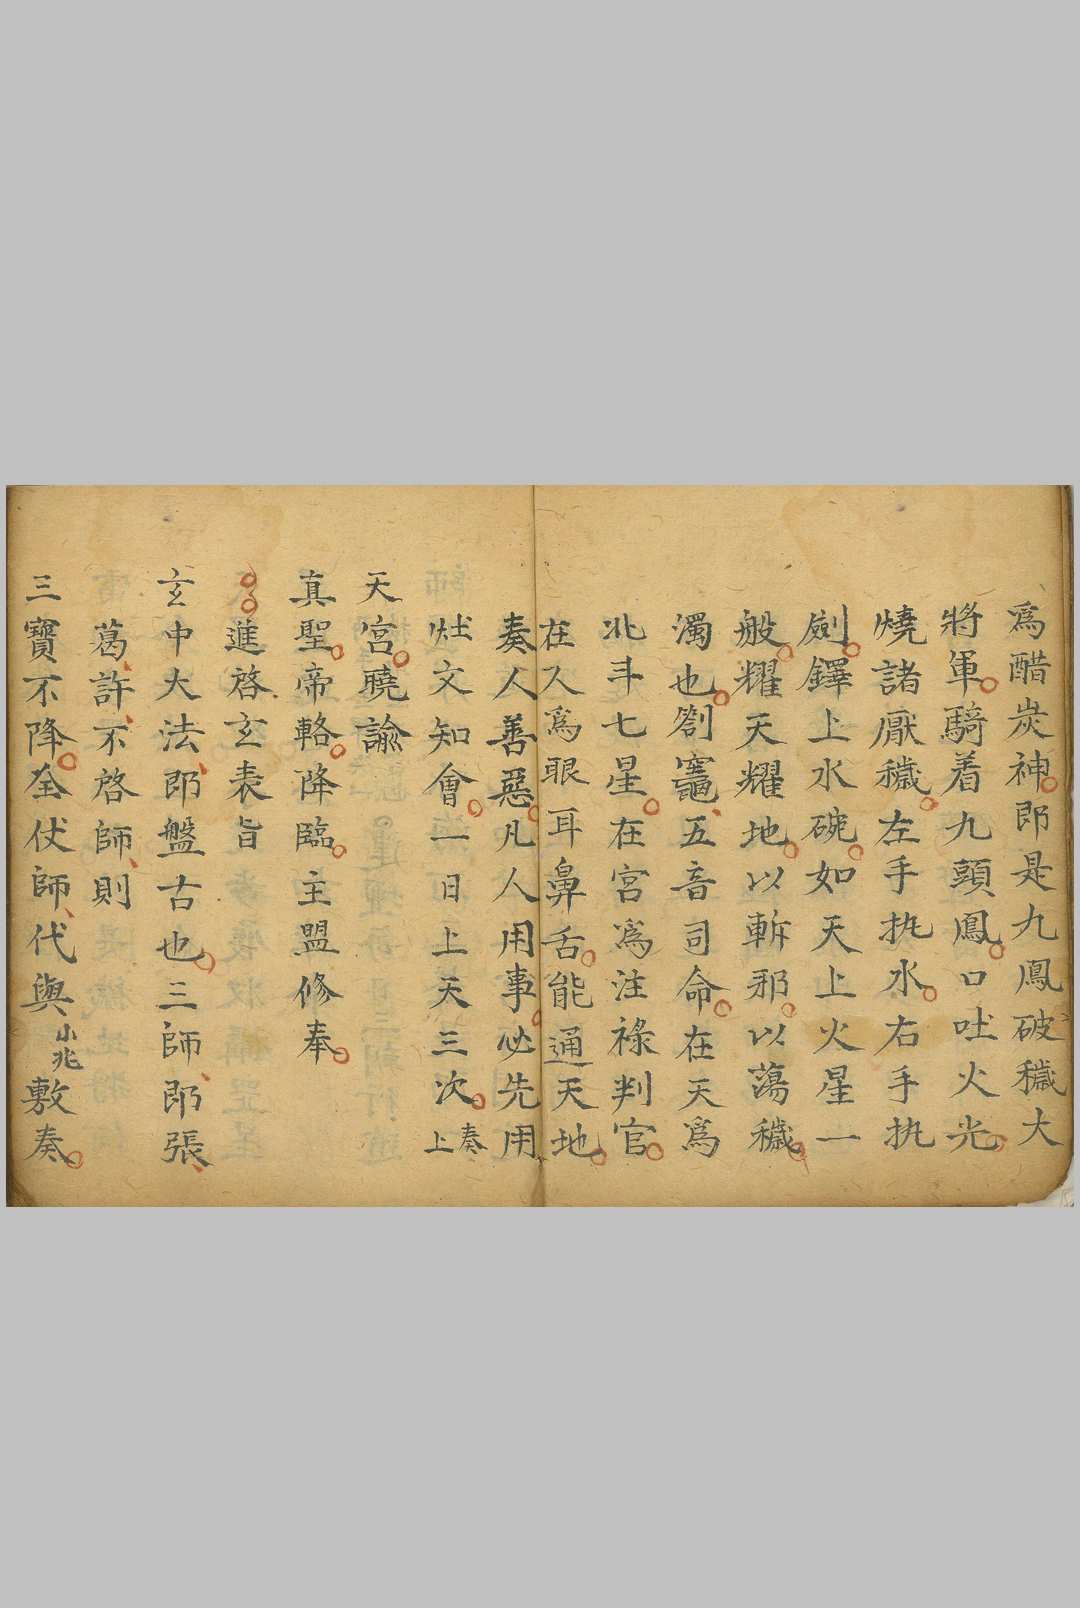 為醋炭神郎是九鳳破穢大
將軍騎着九頭鳳口吐火光
燒諸厭穢左手执水右手执
劍鐸上水碗如天上火星一
般耀天耀地以斬邪以蕩穢
濁也劉竈五音司命在天為
北斗七星在宮為注祿判官
在人為眼耳鼻舌能通天地
奏人善惡凡人用事必先用
灶文知會一日上天三次奏上
天宮曉諭
真聖帝輅降臨主盟修奉
進啓玄表旨
玄中大法郎盤古也三師郎張
葛許不啓師則
三寶不降全仗師代與小兆敷奏